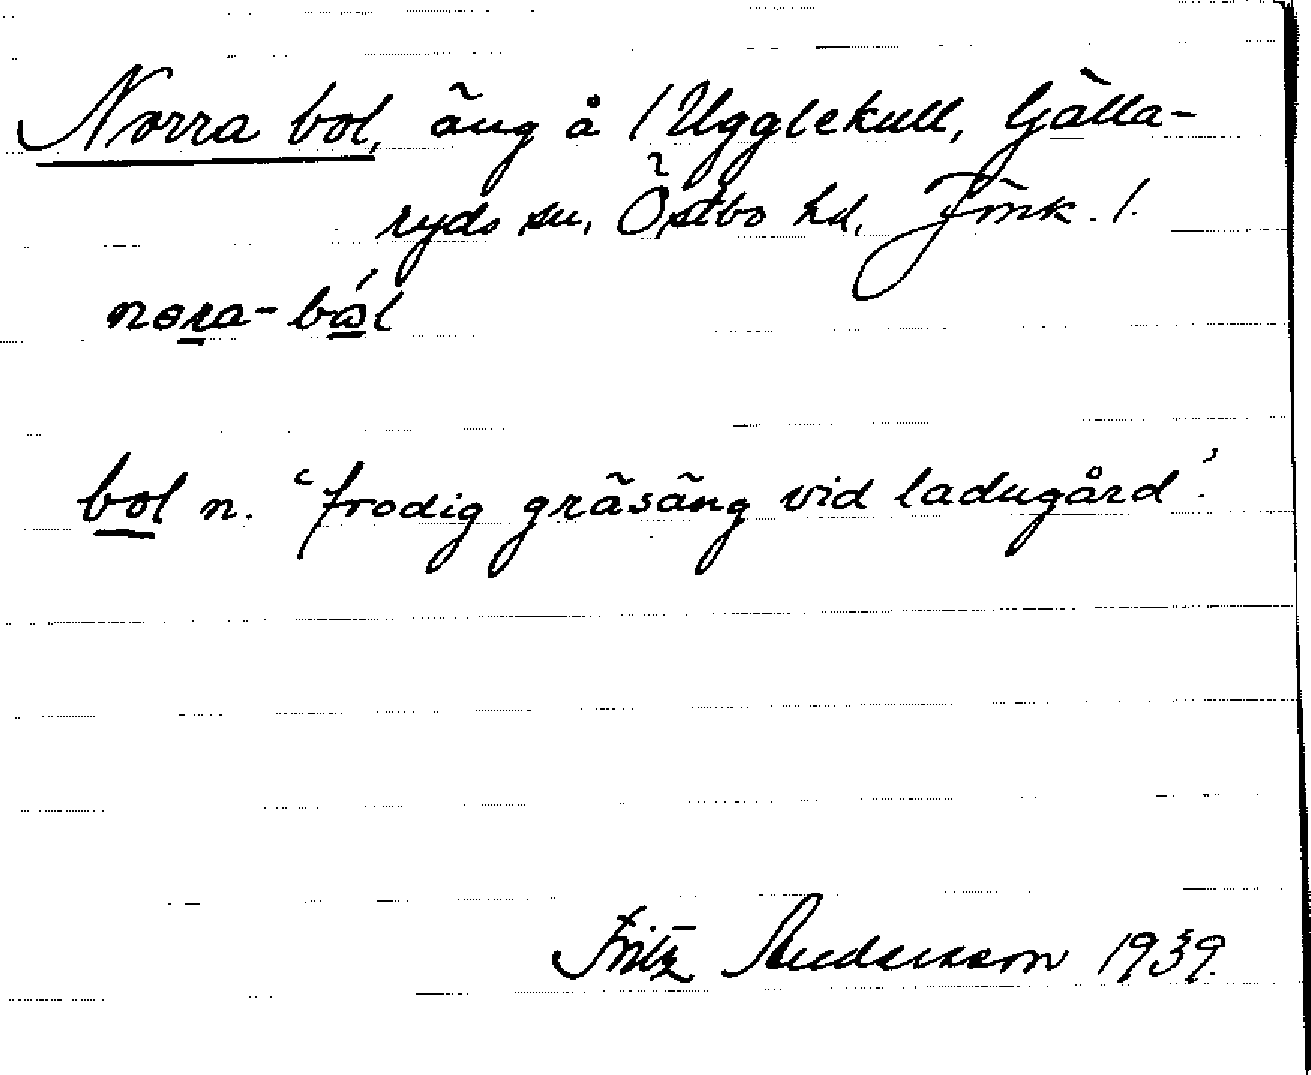 Norra bol, äng å 1 Ugglekull, Gjälla-
ryds sn, Östbo hd, Jönk. l.
nora-bål
bol n. ‘frodig gräsäng vid ladugård’.
Fritz Andersson 1939.